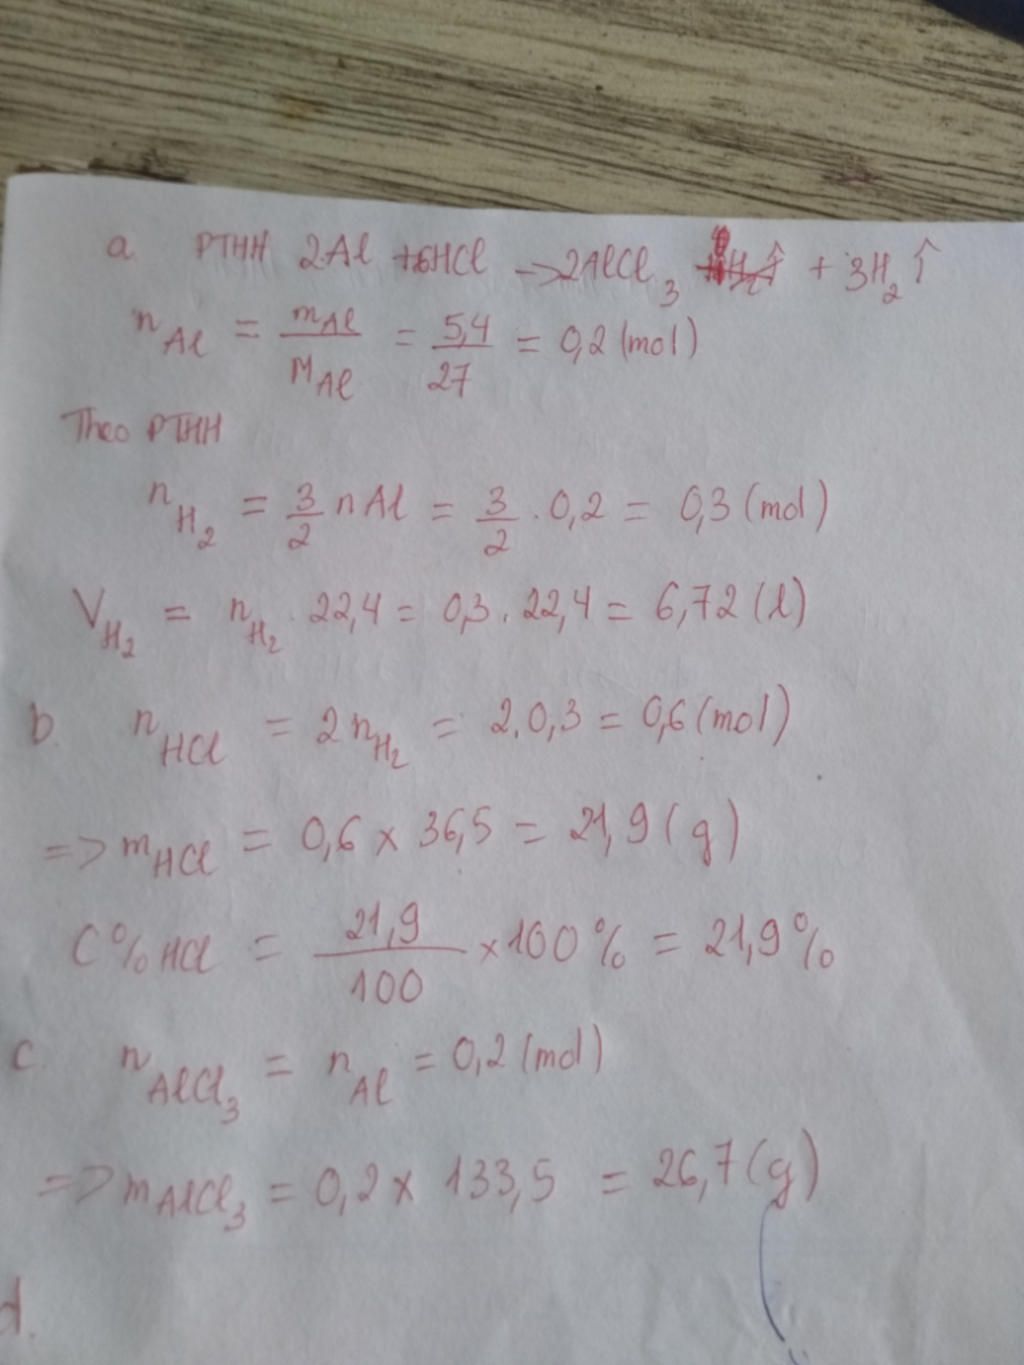 a. PTHH 2Al + 6HCl → 2AlCl₃ + 3H₂ ↑
n_Al = m_Al / M_Al = 5,4 / 27 = 0,2 (mol)
Theo PTHH
n_H₂ = 3/2 nAl = 3/2 . 0,2 = 0,3 (mol)
V_H₂ = n_H₂ . 22,4 = 0,3 . 22,4 = 6,72 (l)
b. n_HCl = 2 n_H₂ = 2.0,3 = 0,6 (mol)
=> m_HCl = 0,6 × 36,5 = 21,9 (g)
C% HCl = 21,9 / 100 × 100% = 21,9%
c. n_AlCl₃ = n_Al = 0,2 (mol)
=> m_AlCl₃ = 0,2 × 133,5 = 26,7 (g)
d.